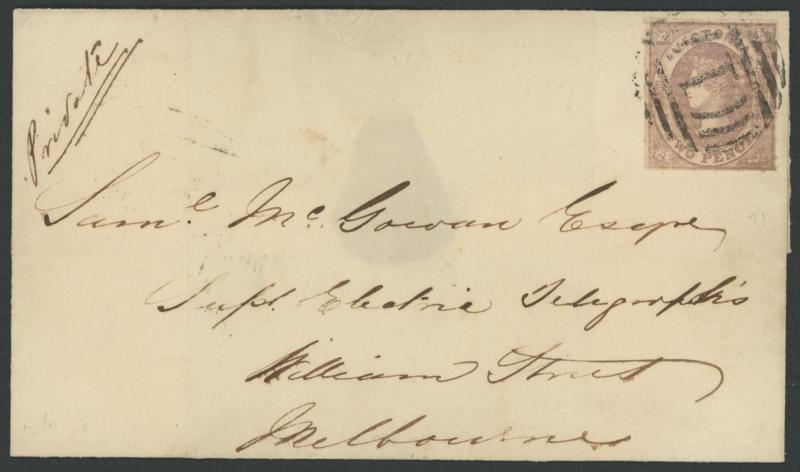 Private
VICTORIA
1
TWO PENCE
Saml. Mc. Gowan Esqre
Supt. Electric Telegraphs
William Street
Melbourne